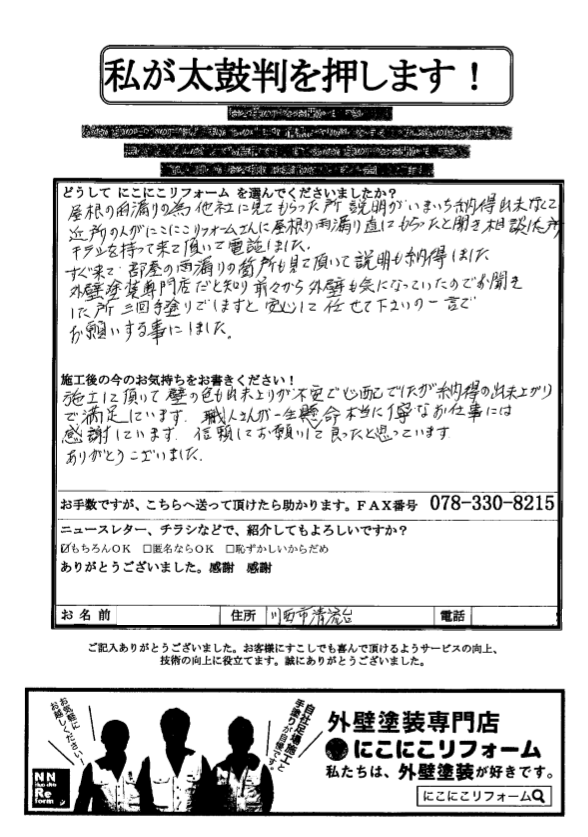 私が太鼓判を押します！
どうして にこにこリフォーム を選んでくださいましたか？
屋根の雨漏りの為他社に見てもらった所 説明がいまいち納得出来なくて
近所の人がにこにこリフォームさんに屋根の雨漏り直にもらったと聞き相談した所
チラシを持って来て頂いて電話しました。
すぐ来て 部屋の雨漏りの箇所も見て頂いて説明も納得しました
外壁塗装専門店だと知り前々から外壁も気になっていたのでお聞き
した所 三回手塗りでしますと 安心して任せて下さいの一言で
お願いする事にしました。
施工後の今のお気持ちをお書きください！
施工して頂いて 壁の色も出来上りが不安で心配でしたが納得の出来上がり
で満足しています 職人さんが一生懸命本当に丁寧なお仕事には
感謝しています 信頼してお願いして良ったと思っています
ありがとうございました。
お手数ですが、こちらへ送って頂けたら助かります。ＦＡＸ番号 078-330-8215
ニュースレター、チラシなどで、紹介してもよろしいですか？
☑もちろんＯＫ □匿名ならＯＫ □恥ずかしいからだめ
ありがとうございました。感謝 感謝
お名前 住所 川西市清流台 電話
ご記入ありがとうございました。お客様にすこしでも喜んで頂けるようサービスの向上、
技術の向上に役立てます。誠にありがとうございました。
お気軽に
お越しください！
自社足場施工と
手塗りが自慢です。
外壁塗装専門店
にこにこリフォーム
私たちは、外壁塗装が好きです。
にこにこリフォーム
NN
Re
form